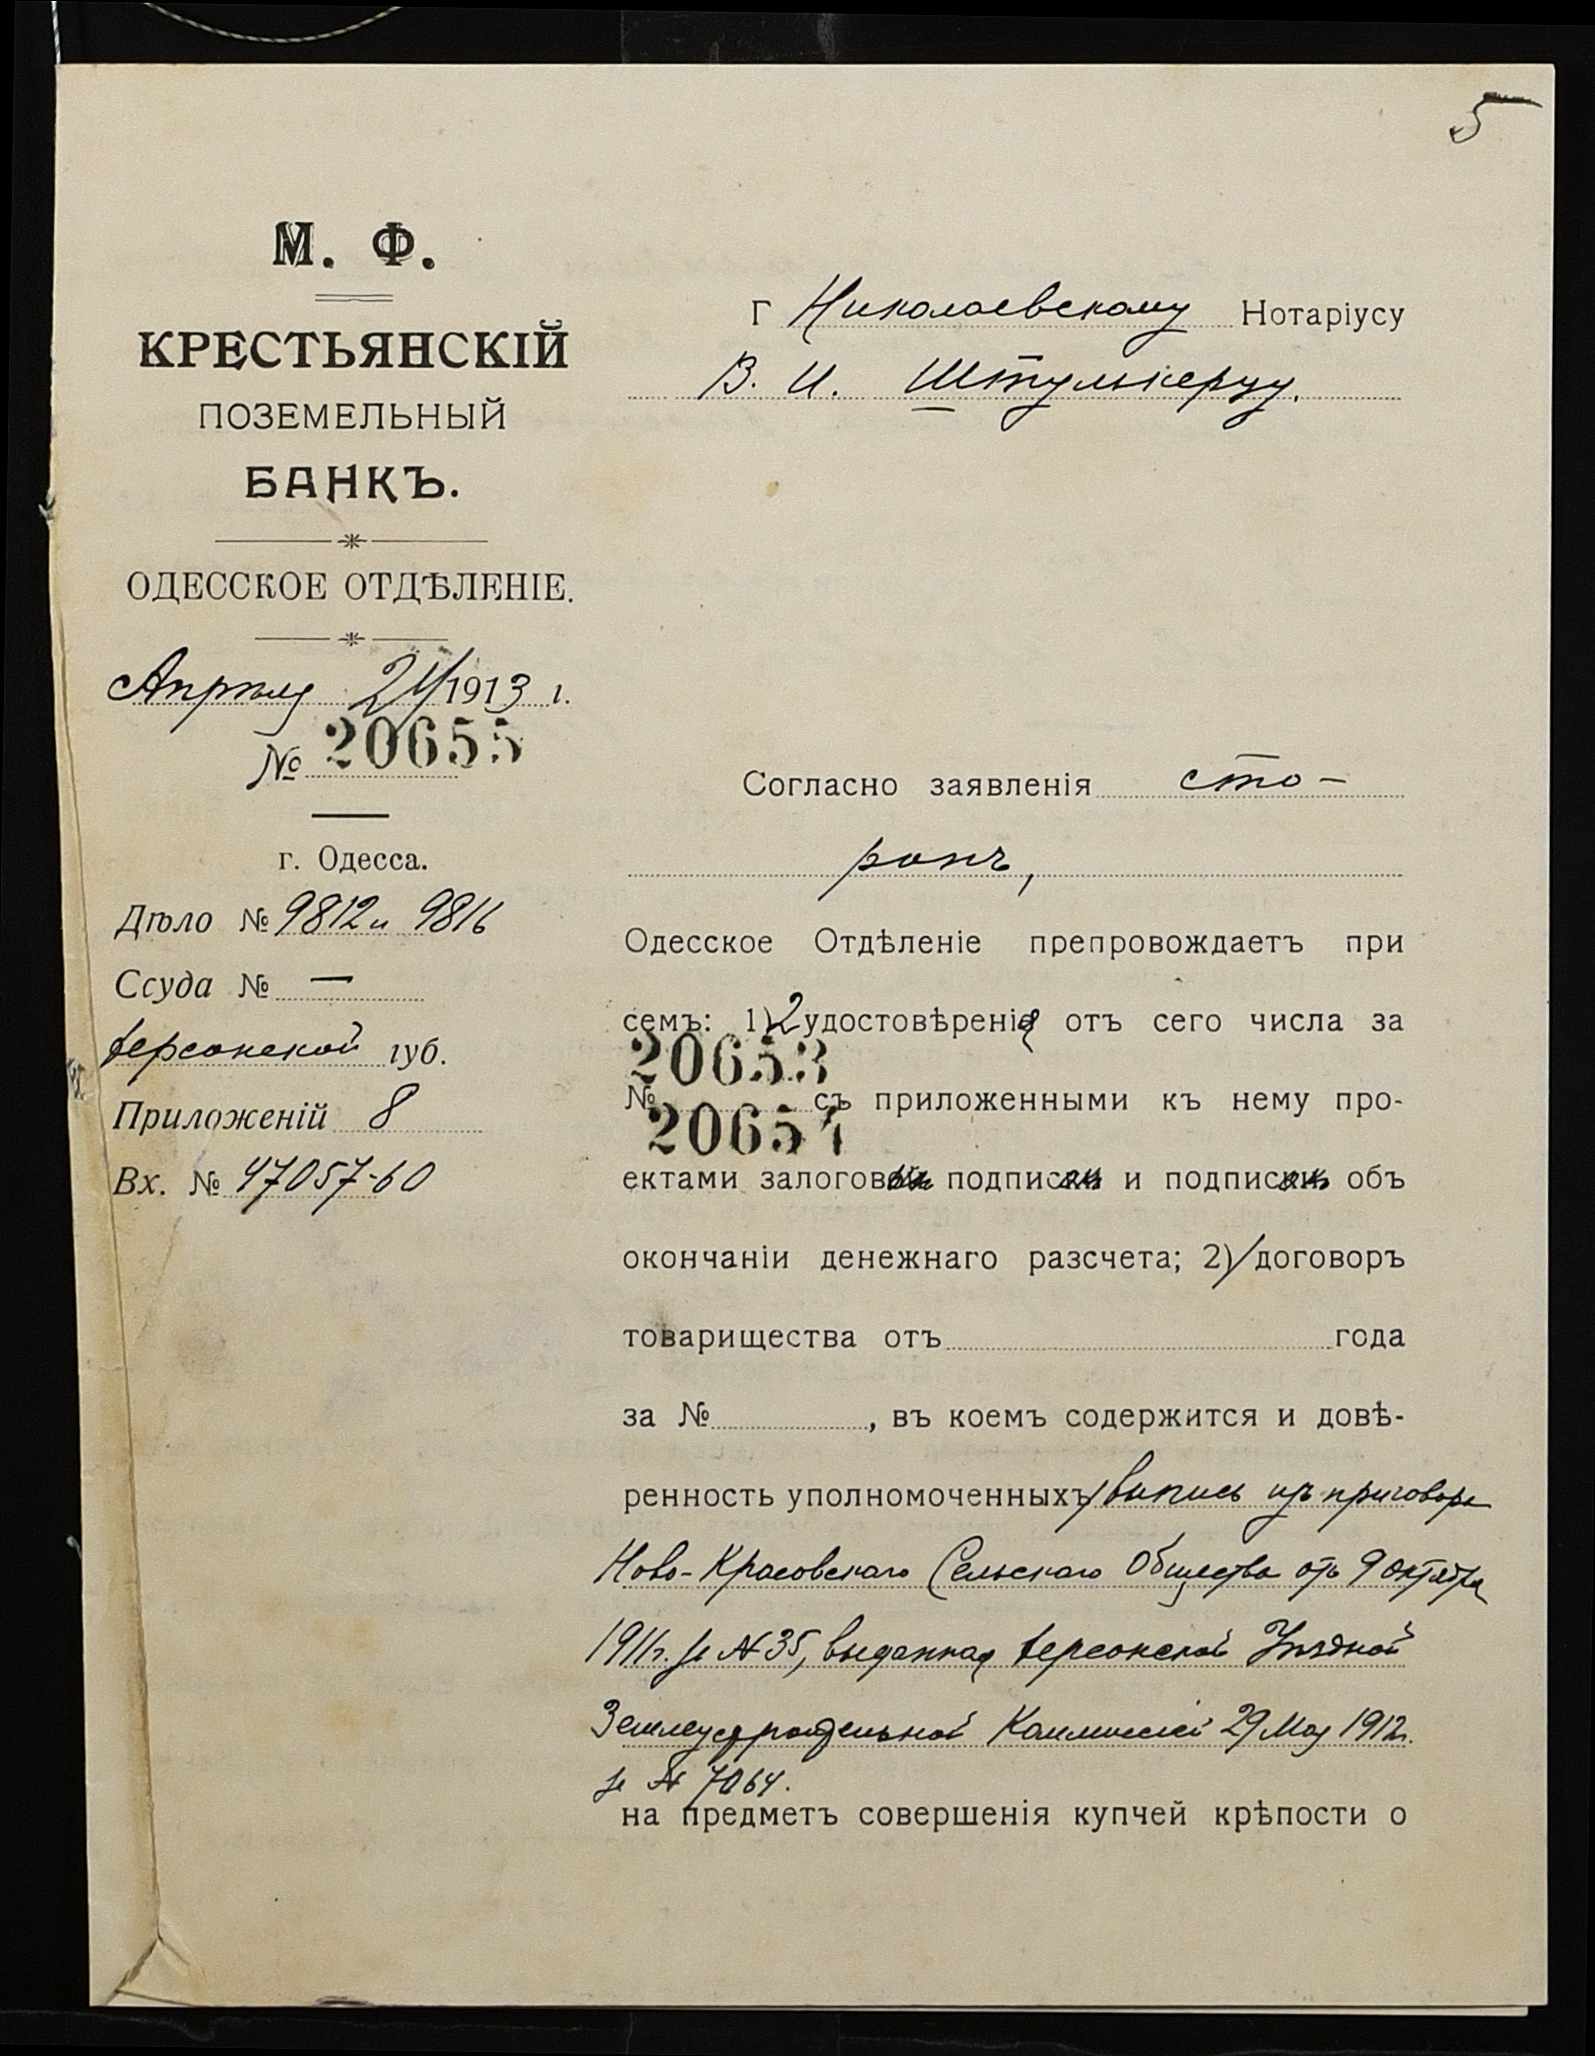 5
М. Ф.
КРЕСТЬЯНСКІЙ
ПОЗЕМЕЛЬНЫЙ
БАНКЪ.
ОДЕССКОЕ ОТДѢЛЕНІЕ.
Апрѣля 24 1913 г.
№ 20655
г. Одесса.
Дѣло № 9812 и 9816
Ссуда № —
Херсонской губ.
Приложеній 8
Вх. № 47057-60
Г Николаевскому Нотаріусу
В. И. Штулькерцу.
Согласно заявленія сто-
ронъ,
Одесское Отдѣленіе препровождаетъ при
семъ: 1) 2 удостовѣренія отъ сего числа за
20653
№ съ приложенными къ нему про-
20654
ектами залоговыхъ подписокъ и подписокъ объ
окончаніи денежнаго разсчета; 2) договоръ
товарищества отъ года
за № , въ коемъ содержится и довѣ-
ренность уполномоченныхъ выпись изъ приговора
Ново-Красовскаго Сельскаго Общества отъ 9 октября
1911 г. за № 35, выданная Херсонской Уѣздной
Землеустроительной Коммиссіей 29 Мая 1912 г.
за № 7064.
на предметъ совершенія купчей крѣпости о